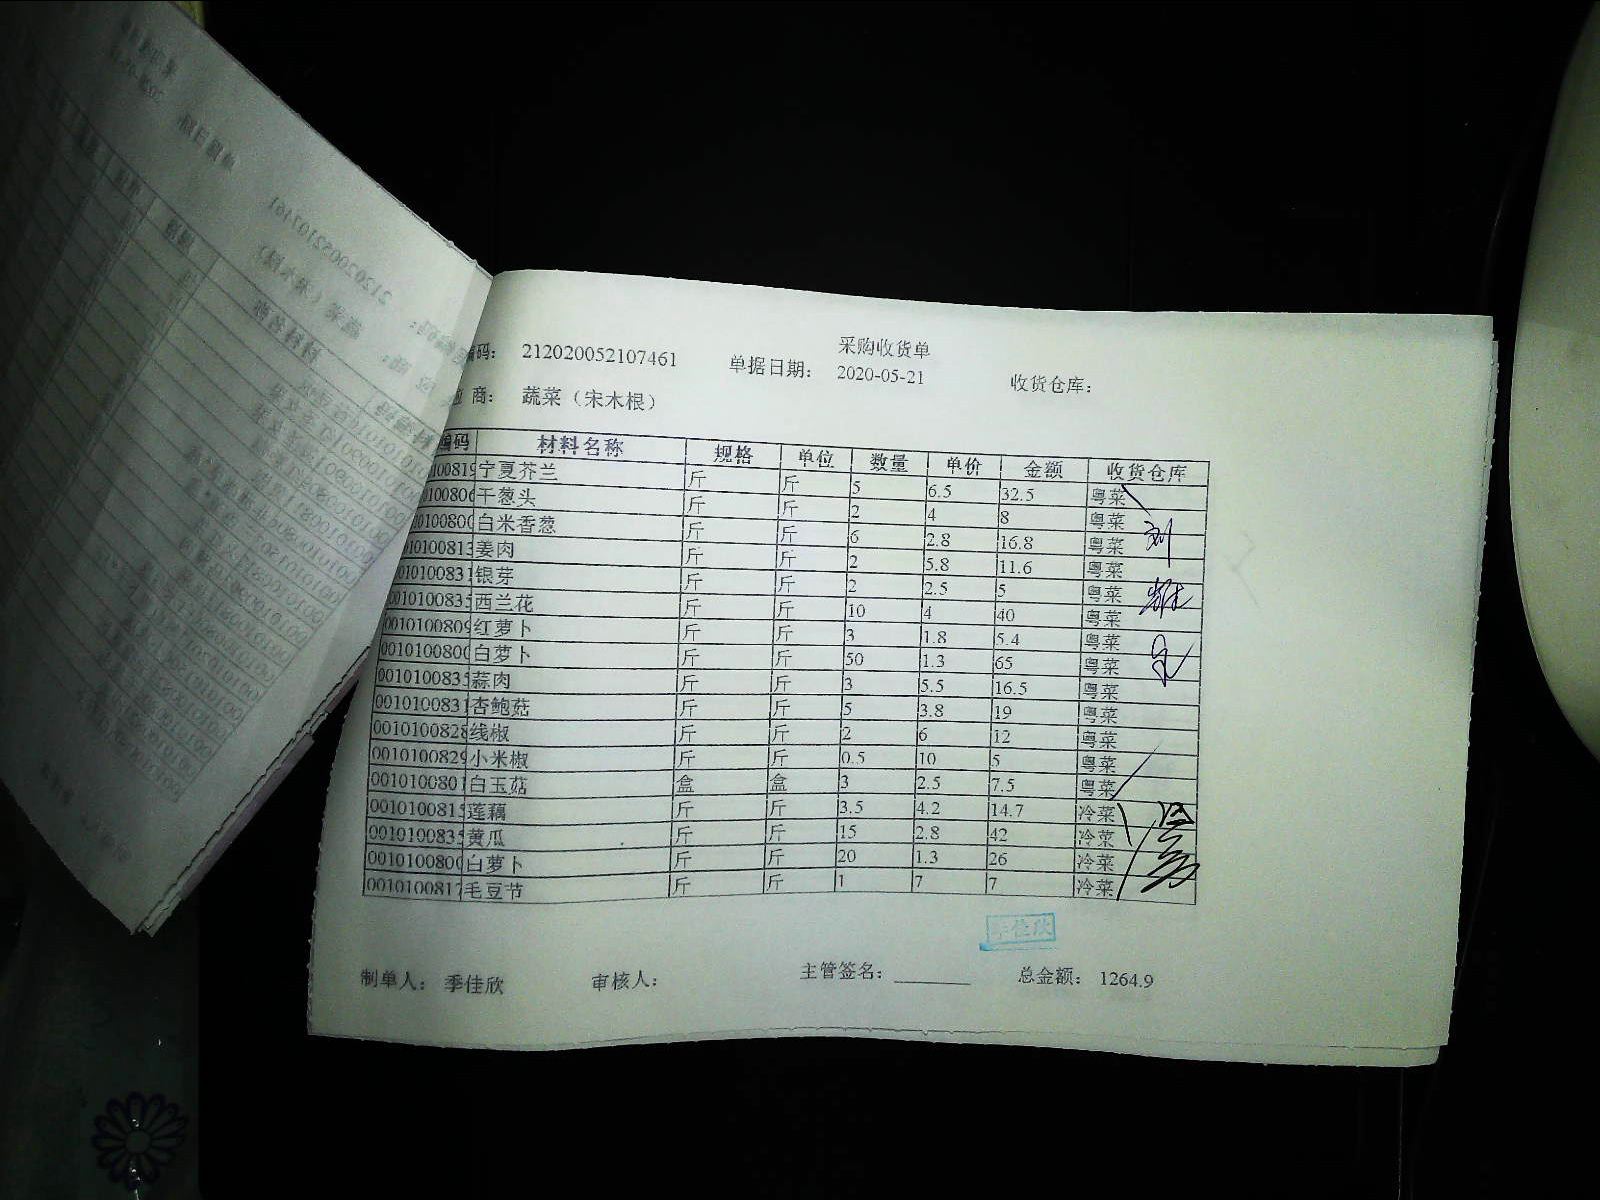 采购收货单
编码： 212020052107461 单据日期： 2020-05-21 收货仓库：
商： 蔬菜（宋木根）
编码 材料名称 规格 单位 数量 单价 金额 收货仓库
100819 宁夏芥兰 斤 斤 5 6.5 32.5 粤菜
0100806 干葱头 斤 斤 2 4 8 粤菜
10100800 白米香葱 斤 斤 6 2.8 16.8 粤菜
010100813 姜肉 斤 斤 2 5.8 11.6 粤菜
010100831 银芽 斤 斤 2 2.5 5 粤菜
0010100835 西兰花 斤 斤 10 4 40 粤菜
0010100809 红萝卜 斤 斤 3 1.8 5.4 粤菜
0010100800 白萝卜 斤 斤 50 1.3 65 粤菜
0010100835 蒜肉 斤 斤 3 5.5 16.5 粤菜
0010100831 杏鲍菇 斤 斤 5 3.8 19 粤菜
0010100828 线椒 斤 斤 2 6 12 粤菜
0010100829 小米椒 斤 斤 0.5 10 5 粤菜
0010100801 白玉菇 盒 盒 3 2.5 7.5 粤菜
0010100815 莲藕 斤 斤 3.5 4.2 14.7 冷菜
0010100835 黄瓜 斤 斤 15 2.8 42 冷菜
0010100800 白萝卜 斤 斤 20 1.3 26 冷菜
0010100817 毛豆节 斤 斤 1 7 7 冷菜
季佳欣
制单人： 季佳欣 审核人： 主管签名： 总金额： 1264.9